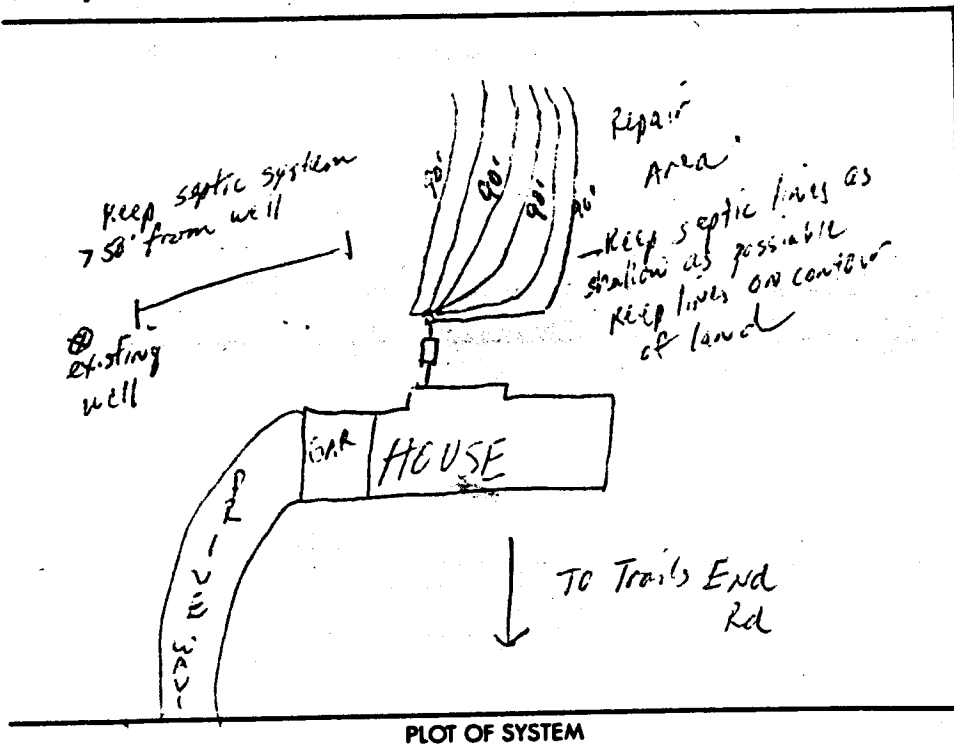 Keep septic system
>50' from well
existing
well
90'
90'
90'
90'
Repair
Area
- Keep septic lines as
shallow as possiable
Keep lines on contour
of land
GAR
HOUSE
DRIVEWAY
To Trails End
Rd
PLOT OF SYSTEM